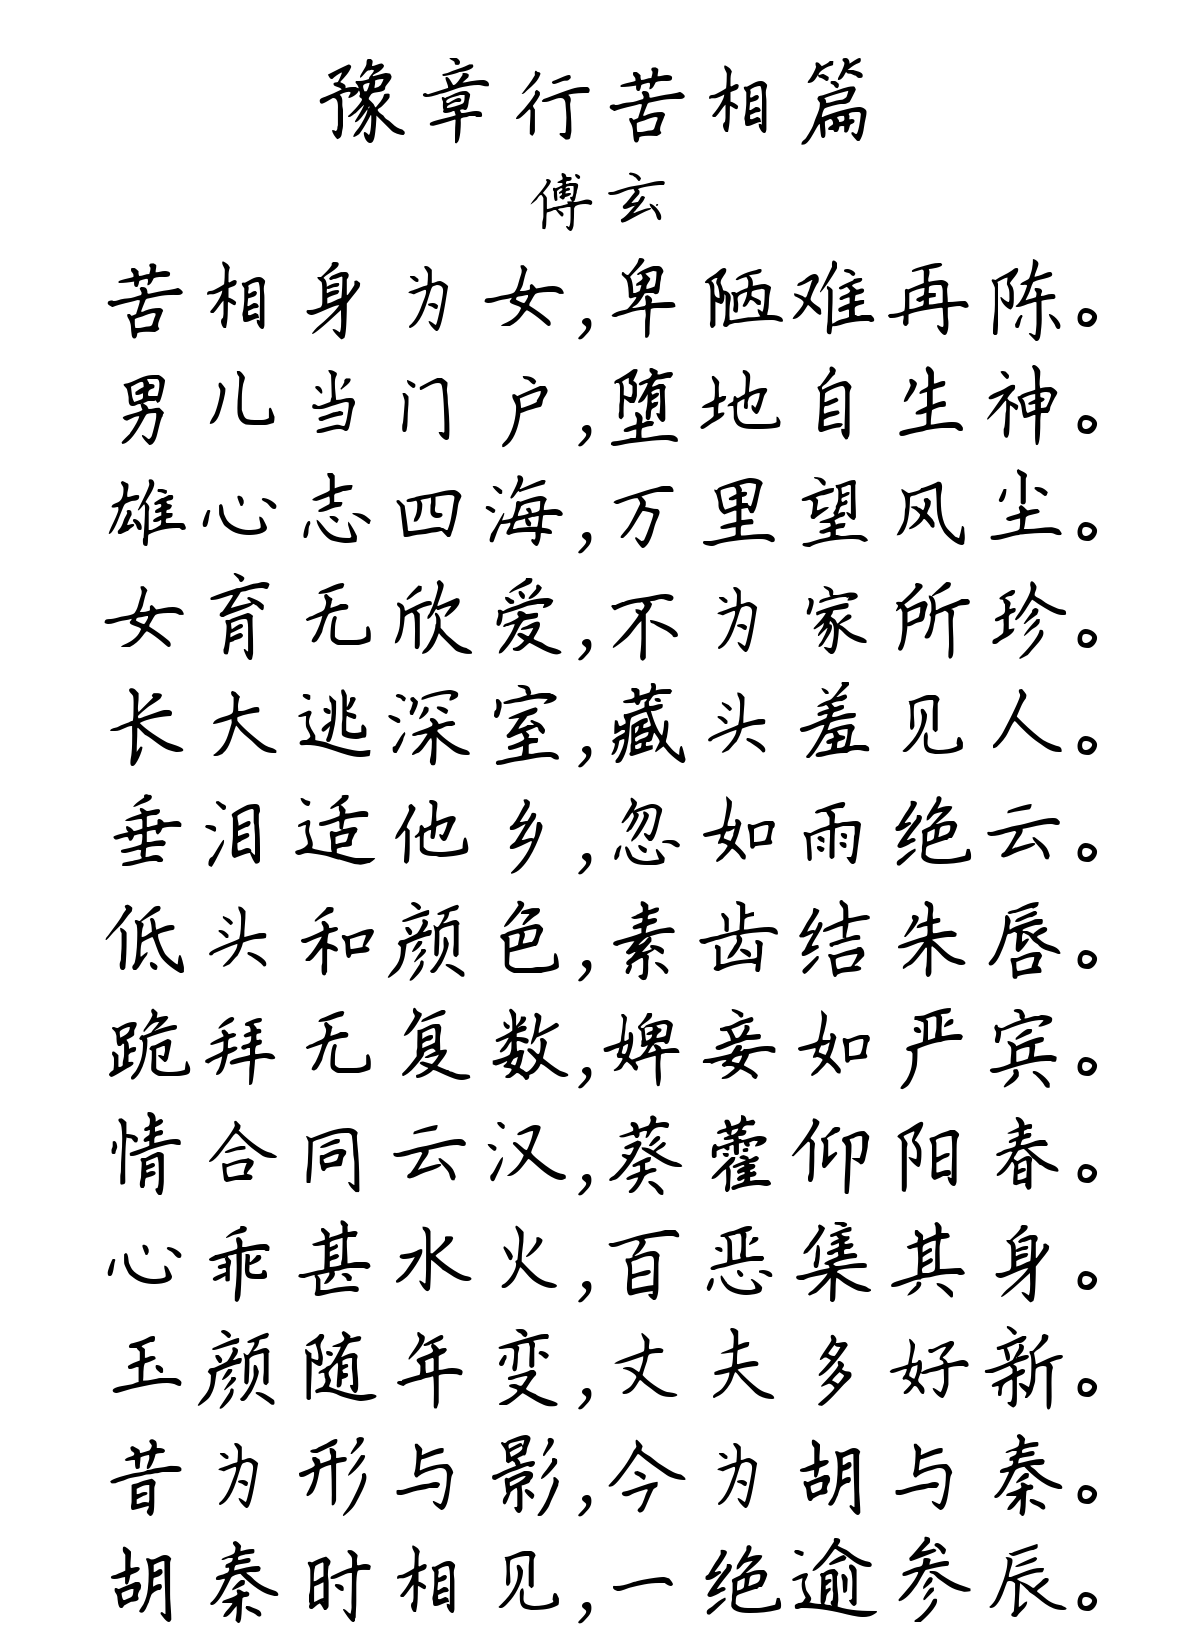 豫章行苦相篇
傅玄
苦相身为女,卑陋难再陈。
男儿当门户,堕地自生神。
雄心志四海,万里望风尘。
女育无欣爱,不为家所珍。
长大逃深室,藏头羞见人。
垂泪适他乡,忽如雨绝云。
低头和颜色,素齿结朱唇。
跪拜无复数,婢妾如严宾。
情合同云汉,葵藿仰阳春。
心乖甚水火,百恶集其身。
玉颜随年变,丈夫多好新。
昔为形与影,今为胡与秦。
胡秦时相见,一绝逾参辰。